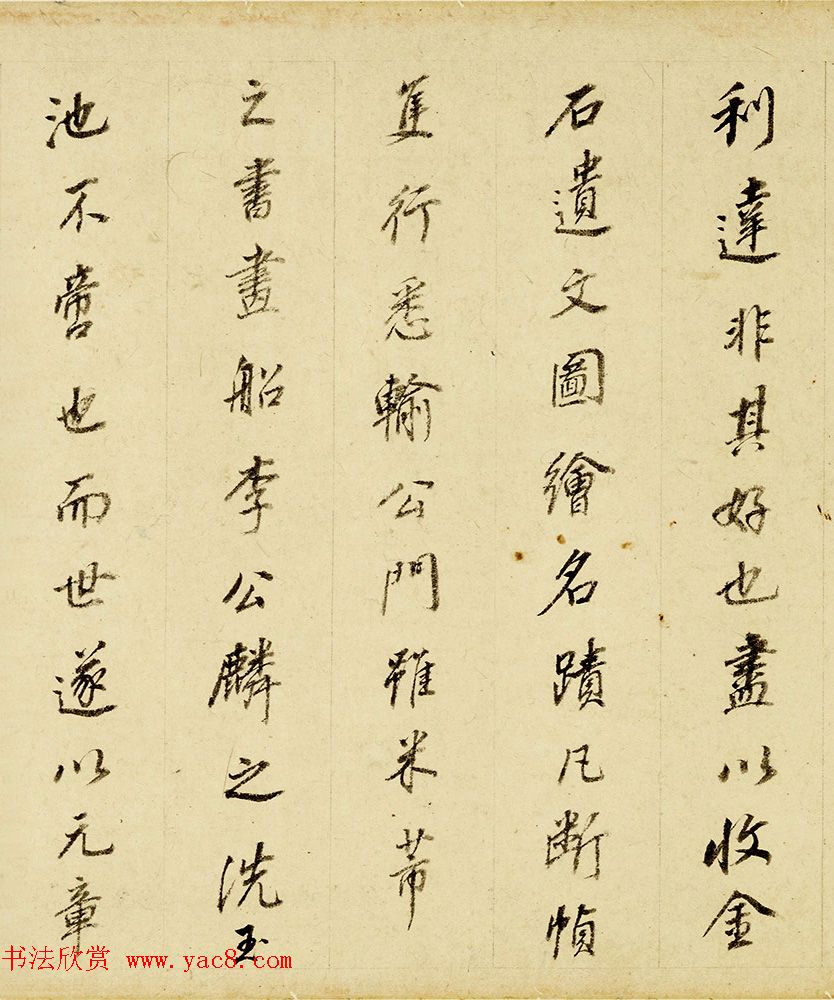 利達非其好也盡以收金
石遺文圖繪名蹟凡斷幀
隻行悉輸公門雖米芾
之書畫船李公麟之洗玉
池不啻也而世遂以元章
书法欣赏 www.yac8.com